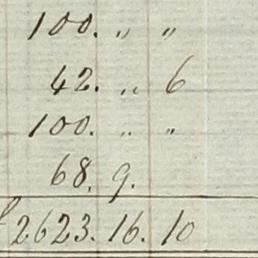 100. " "
42. " 6
100. " "
68. 9.
£2623. 16. 10